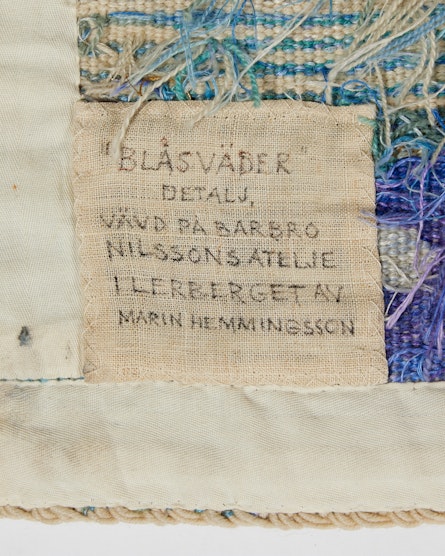 "BLÅSVÄDER"
DETALJ,
VÄVD PÅ BARBRO
NILSSONS ATELJE
I LERBERGET AV
MARIN HEMMINGSSON